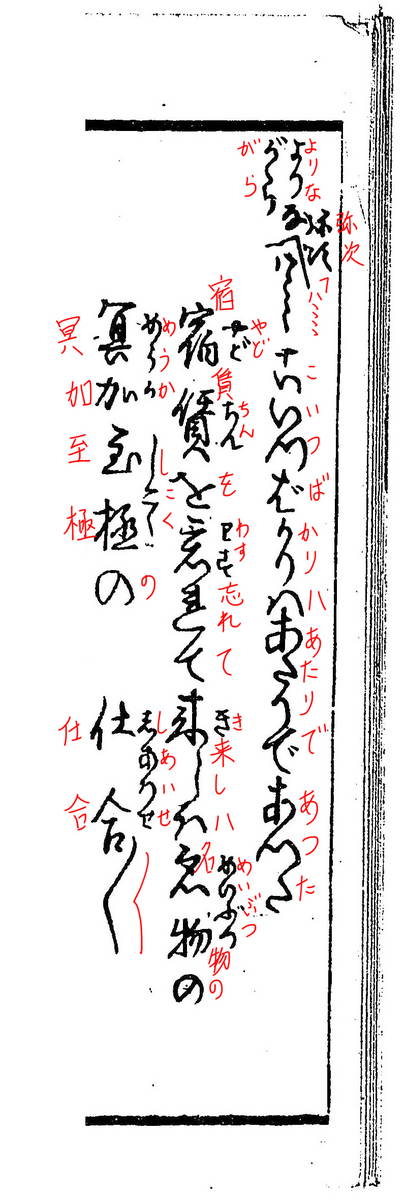 よりな
がら
弥次 フハヽヽヽ こいつばかりハあたりで あつた
やど ちん わす き めいぶつ
宿賃を忘れて来しハ名物の
めうか しごく しあいせ
冥加至極の仕合〱